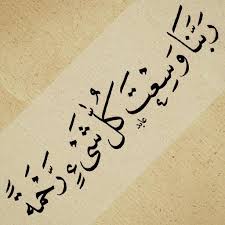 رَبَّنَا وَسِعْتَ كُلَّ شَيْءٍ رَّحْمَةً